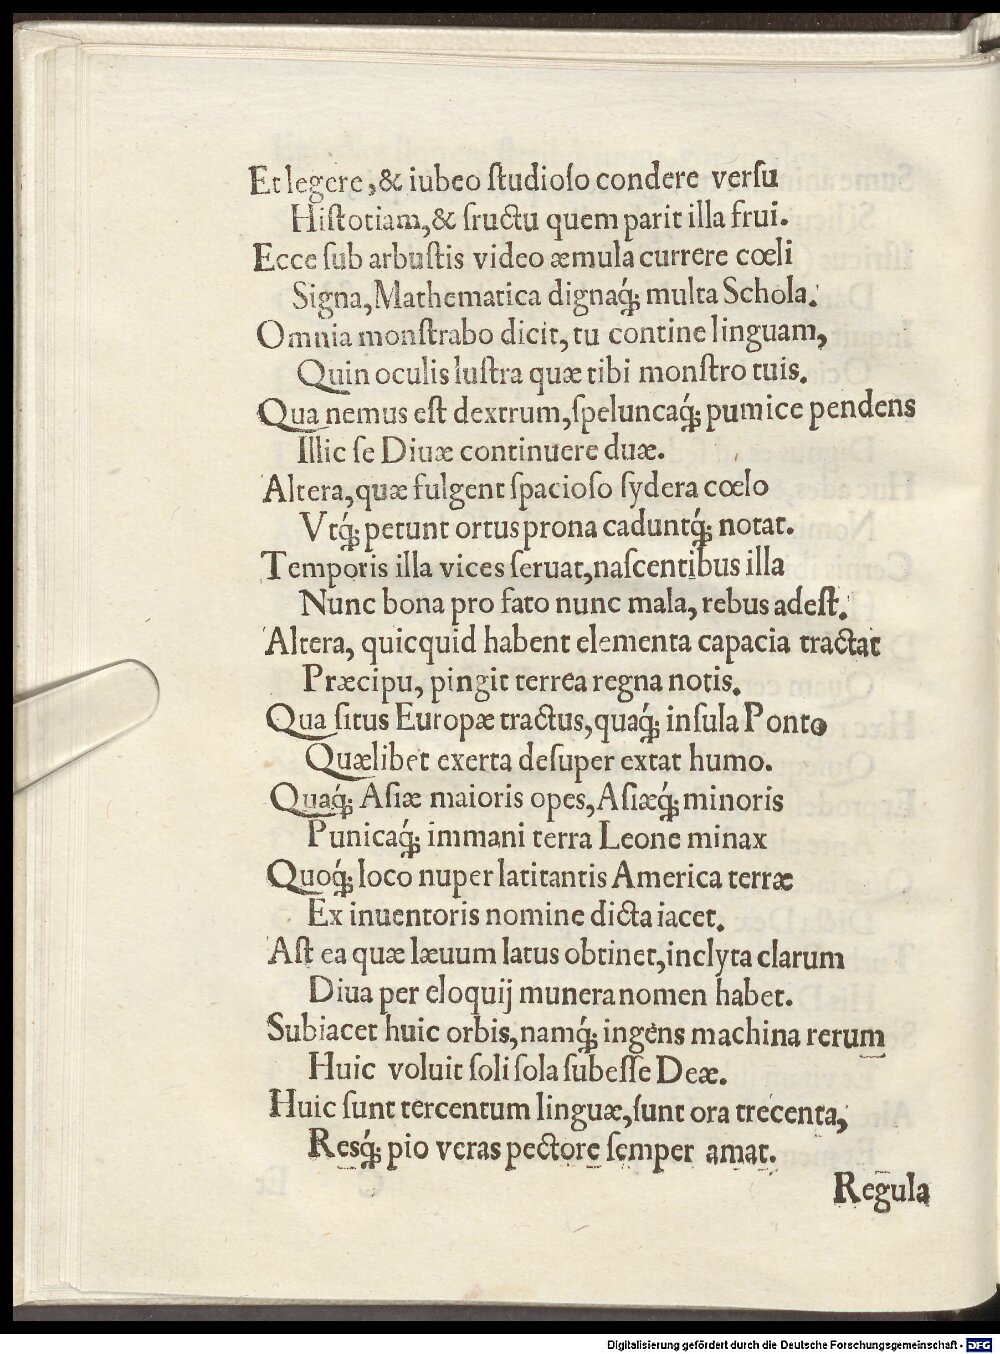 Et legere, & iubeo ſtudioſo condere verſu
Hiſtoriam, & fructu quem parit illa frui.
Ecce ſub arbuſtis video æmula currere cœli
Signa, Mathematica dignaq́; multa Schola.
Omnia monſtrabo dicit, tu contine linguam,
Quin oculis luſtra quæ tibi monſtro tuis.
Qua nemus eſt dextrum, ſpeluncaq́; pumice pendens
Illic ſe Diuæ continuere duæ.
Altera, quæ fulgent ſpacioſo ſydera cœlo
Vtq́; petunt ortus prona caduntq́; notat.
Temporis illa vices ſeruat, naſcentibus illa
Nunc bona pro fato nunc mala, rebus adeſt.
Altera, quicquid habent elementa capacia tractat
Præcipu, pingit terrea regna notis.
Qua ſitus Europæ tractus, quaq́; inſula Ponto
Quælibet exerta deſuper extat humo.
Quaq́; Aſiæ maioris opes, Aſiæq́; minoris
Punicaq́; immani terra Leone minax
Quoq́; loco nuper latitantis America terræ
Ex inuentoris nomine dicta iacet.
Aſt ea quæ læuum latus obtinet, inclyta clarum
Diua per eloquij munera nomen habet.
Subiacet huic orbis, namq́; ingens machina rerum
Huic voluit ſoli ſola ſubeſſe Deæ.
Huic ſunt tercentum linguæ, ſunt ora trecenta,
Resq́; pio veras pectore ſemper amat.
Regula
Digitalisierung gefördert durch die Deutsche Forschungsgemeinschaft - DFG